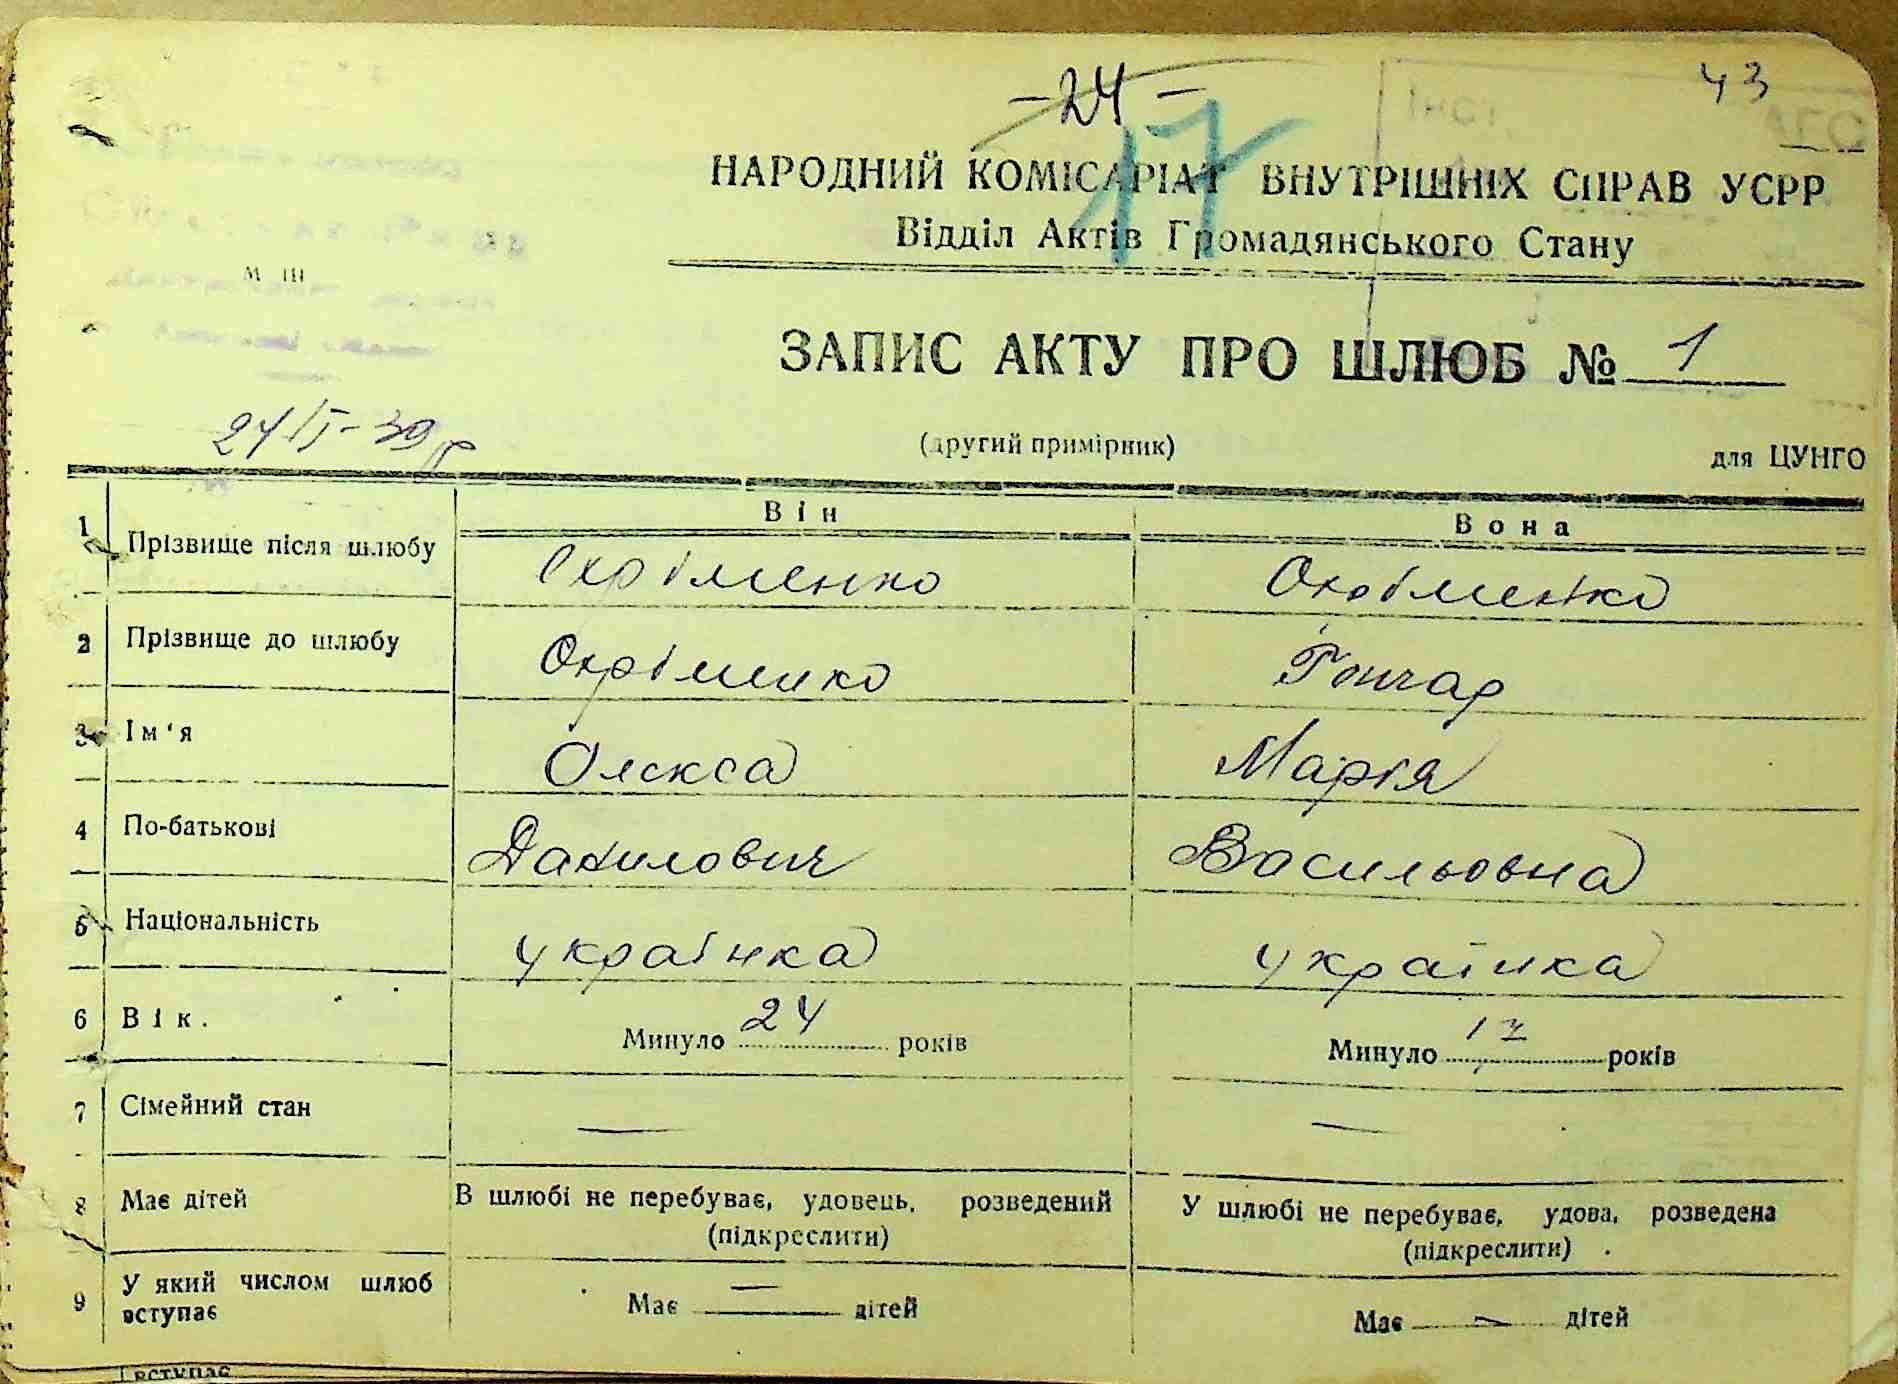 - 24 -
43
17
НАРОДНИЙ КОМІСАРІАТ ВНУТРІШНІХ СПРАВ УСРР
Відділ Актів Громадянського Стану
М III
ЗАПИС АКТУ ПРО ШЛЮБ № 1
24/I-39р
(другий примірник)
для ЦУНГО
Він
Вона
1 Прізвище після шлюбу Охріменко Охріменко
2 Прізвище до шлюбу Охріменко Гончар
3 Ім'я Олекса Марія
4 По-батькові Данилович Васильовна
5 Національність українка українка
6 Вік. Минуло 24 років Минуло 17 років
7 Сімейний стан — —
8 Має дітей В шлюбі не перебуває, удовець, розведений (підкреслити) У шлюбі не перебуває, удова, розведена (підкреслити)
9 У який числом шлюб вступає Має — дітей Має — дітей
вступає